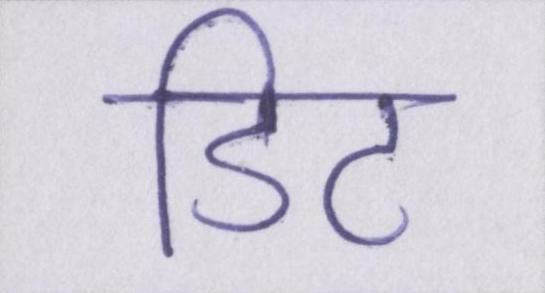 डिट